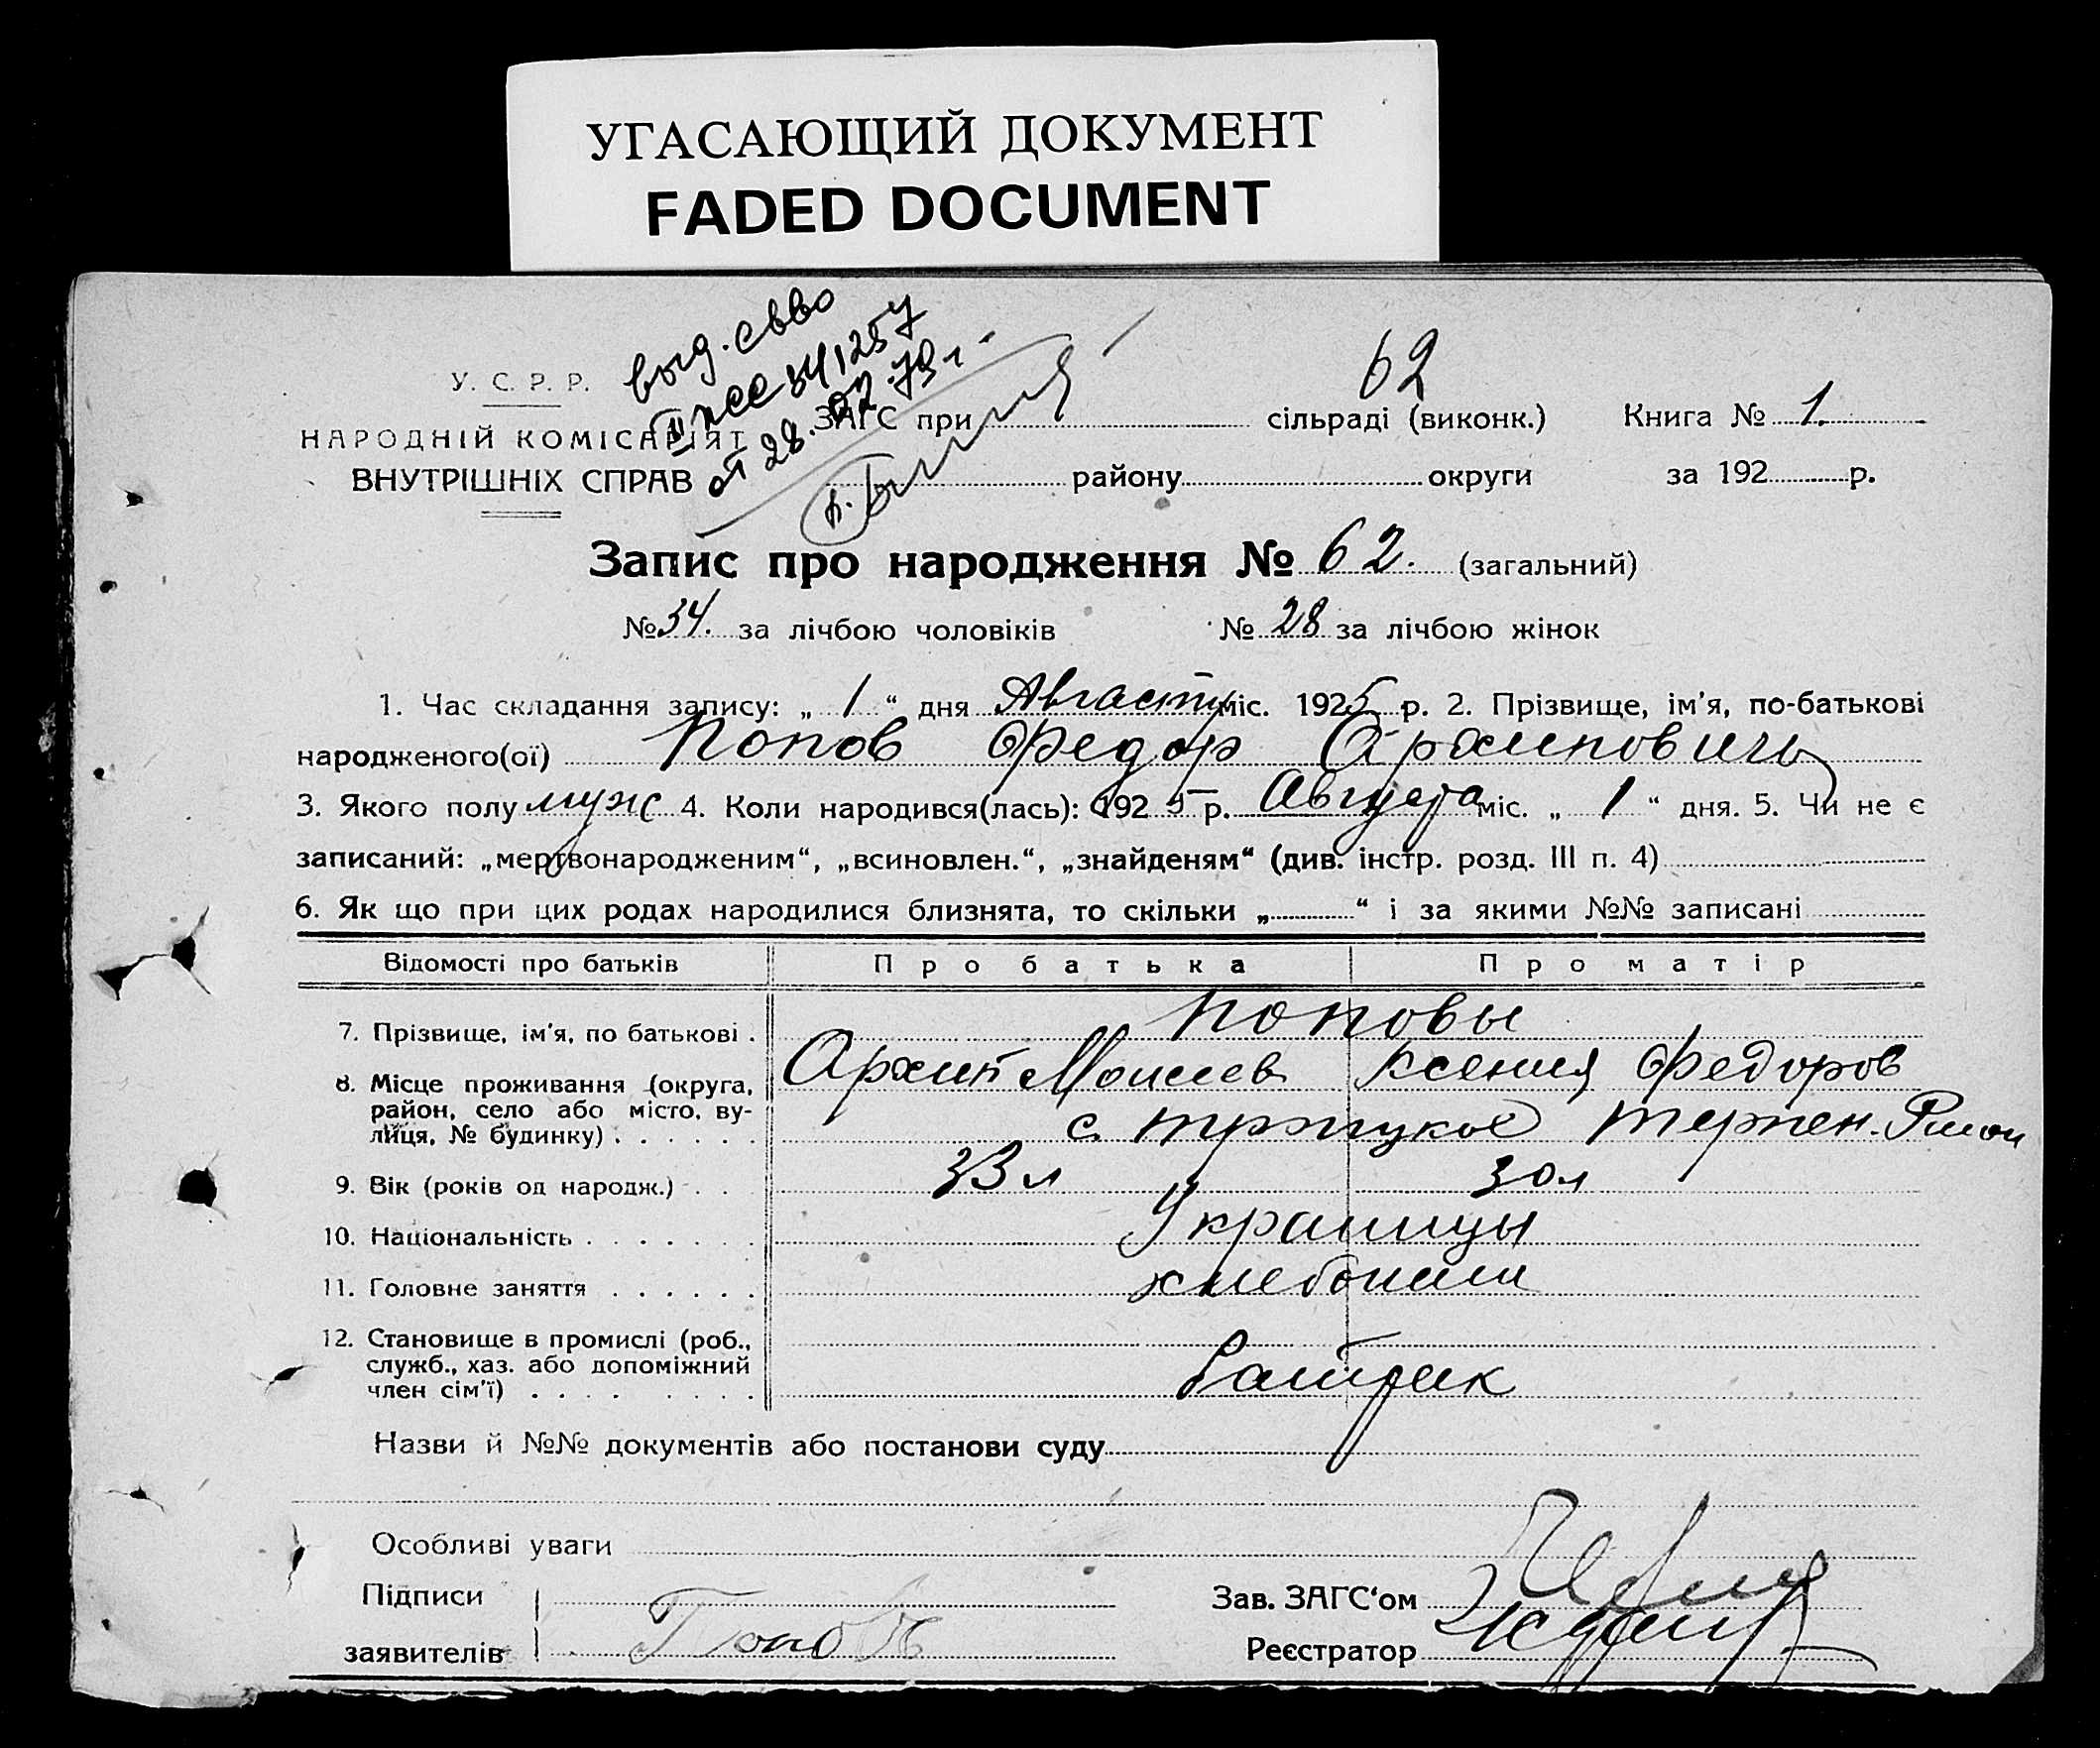 УГАСАЮЩИЙ ДОКУМЕНТ
FADED DOCUMENT
выд. свво
II ЖС 541257
от 28.02.79 г.
62
У. С. Р. Р.
НАРОДНІЙ КОМІСАРІЯТ
ВНУТРІШНІХ СПРАВ
ЗАГС при сільраді (виконк.) Книга № 1.
району округи за 192 р.
Запис про народження № 62. (загальний)
№ 34. за лічбою чоловіків № 28 за лічбою жінок
1. Час складання запису: „ 1 “ дня Августу міс. 1925 р. 2. Прізвище, ім'я, по-батькові
народженого(ої) Попов Федор Архипович
3. Якого полу муж 4. Коли народився(лась): 1925 р. Августа міс. „ 1 “ дня. 5. Чи не є
записаний: „мертвонародженим“, „всиновлен.“, „знайденям“ (див. інстр. розд. III п. 4)
6. Як що при цих родах народилися близнята, то скільки „ “ і за якими №№ записані
Відомості про батьків Про батька Про матір
7. Прізвище, ім'я, по батькові . Поповы
Архип Моисеев Ксения Федоров
8. Місце проживання (округа,
район, село або місто, ву-
лиця, № будинку) . . . . . . с. Троицкое Терпен.
9. Вік (років од народж.) . . 33 л 30 л
10. Національність . . . . . . . Украинцы
11. Головне заняття . . . . . . хлебопаши
12. Становище в промислі (роб.,
служб., хаз. або допоміжний
член сім'ї) . . . . . . . .
Назви й №№ документів або постанови суду
Особливі уваги
Підписи
заявителів Попов
Зав. ЗАГС'ом
Реєстратор